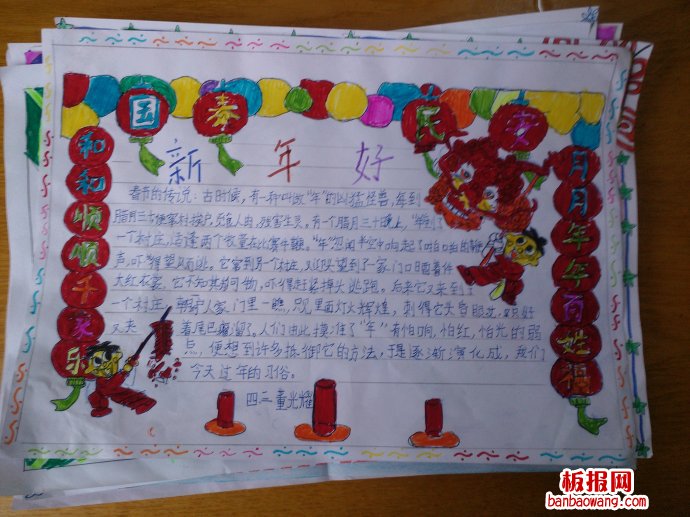 国泰民安
新年好
和和顺顺千家乐
月月年年百姓福
春节的传说:古时候,有一种叫做"年"的凶猛怪兽,每到
腊月三十,便窜村挨户,觅食人肉,残害生灵。有一个腊月三十晚上,"年"到了
一个村庄,适逢两个牧童在比赛牛鞭。"年"忽闻半空中响起了啪啪的鞭
声,吓得望风而逃。它窜到另一个村庄,又迎头望到了一家门口晒着件
大红衣裳,它不知其为何物,吓得赶紧掉头逃跑。后来它又来到了
一个村庄,朝一户人家门里一瞧,只见里面灯火辉煌,刺得它头昏眼花,只好
又夹着尾巴溜了。人们由此摸准了"年"有怕响,怕红,怕光的弱
点,便想到许多抵御它的方法,于是逐渐演化成,我们
今天过年的习俗。
四二 童光耀
板报网
banbaowang.com